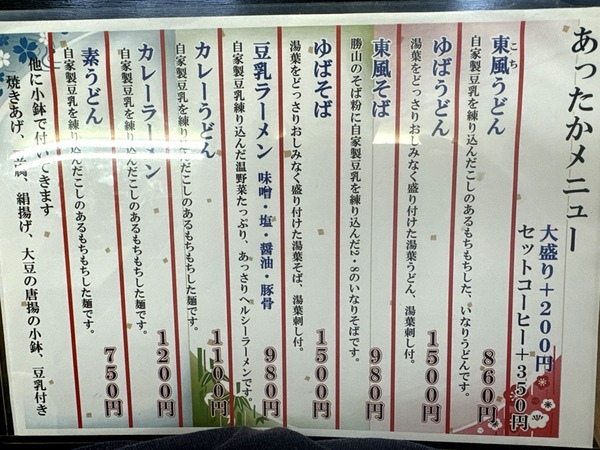 あったかメニュー
大盛り+200円
セットコーヒー+350円
こち
東風うどん
自家製豆乳を練り込んだこしのあるもちもちした、いなりうどんです。
860円
ゆばうどん
湯葉をどっさりおしみなく盛り付けた湯葉うどん、湯葉刺し付。
1500円
東風そば
勝山のそば粉に自家製豆乳を練り込んだ2・8のいなりそばです。
980円
ゆばそば
湯葉をどっさりおしみなく盛り付けた湯葉そば、湯葉刺し付。
1500円
豆乳ラーメン 味噌・塩・醤油・豚骨
自家製豆乳練り込んだ温野菜たっぷり、あっさりヘルシーラーメンです。
980円
カレーうどん
自家製豆乳を練り込んだこしのあるもちもちした麺です。
1100円
カレーラーメン
自家製豆乳を練り込んだこしのあるもちもちした麺です。
1200円
素うどん
自家製豆乳を練り込んだこしのあるもちもちした麺です。
750円
他に小鉢で付いてきます
焼きあげ、腐、絹揚げ、大豆の唐揚の小鉢、豆乳付き